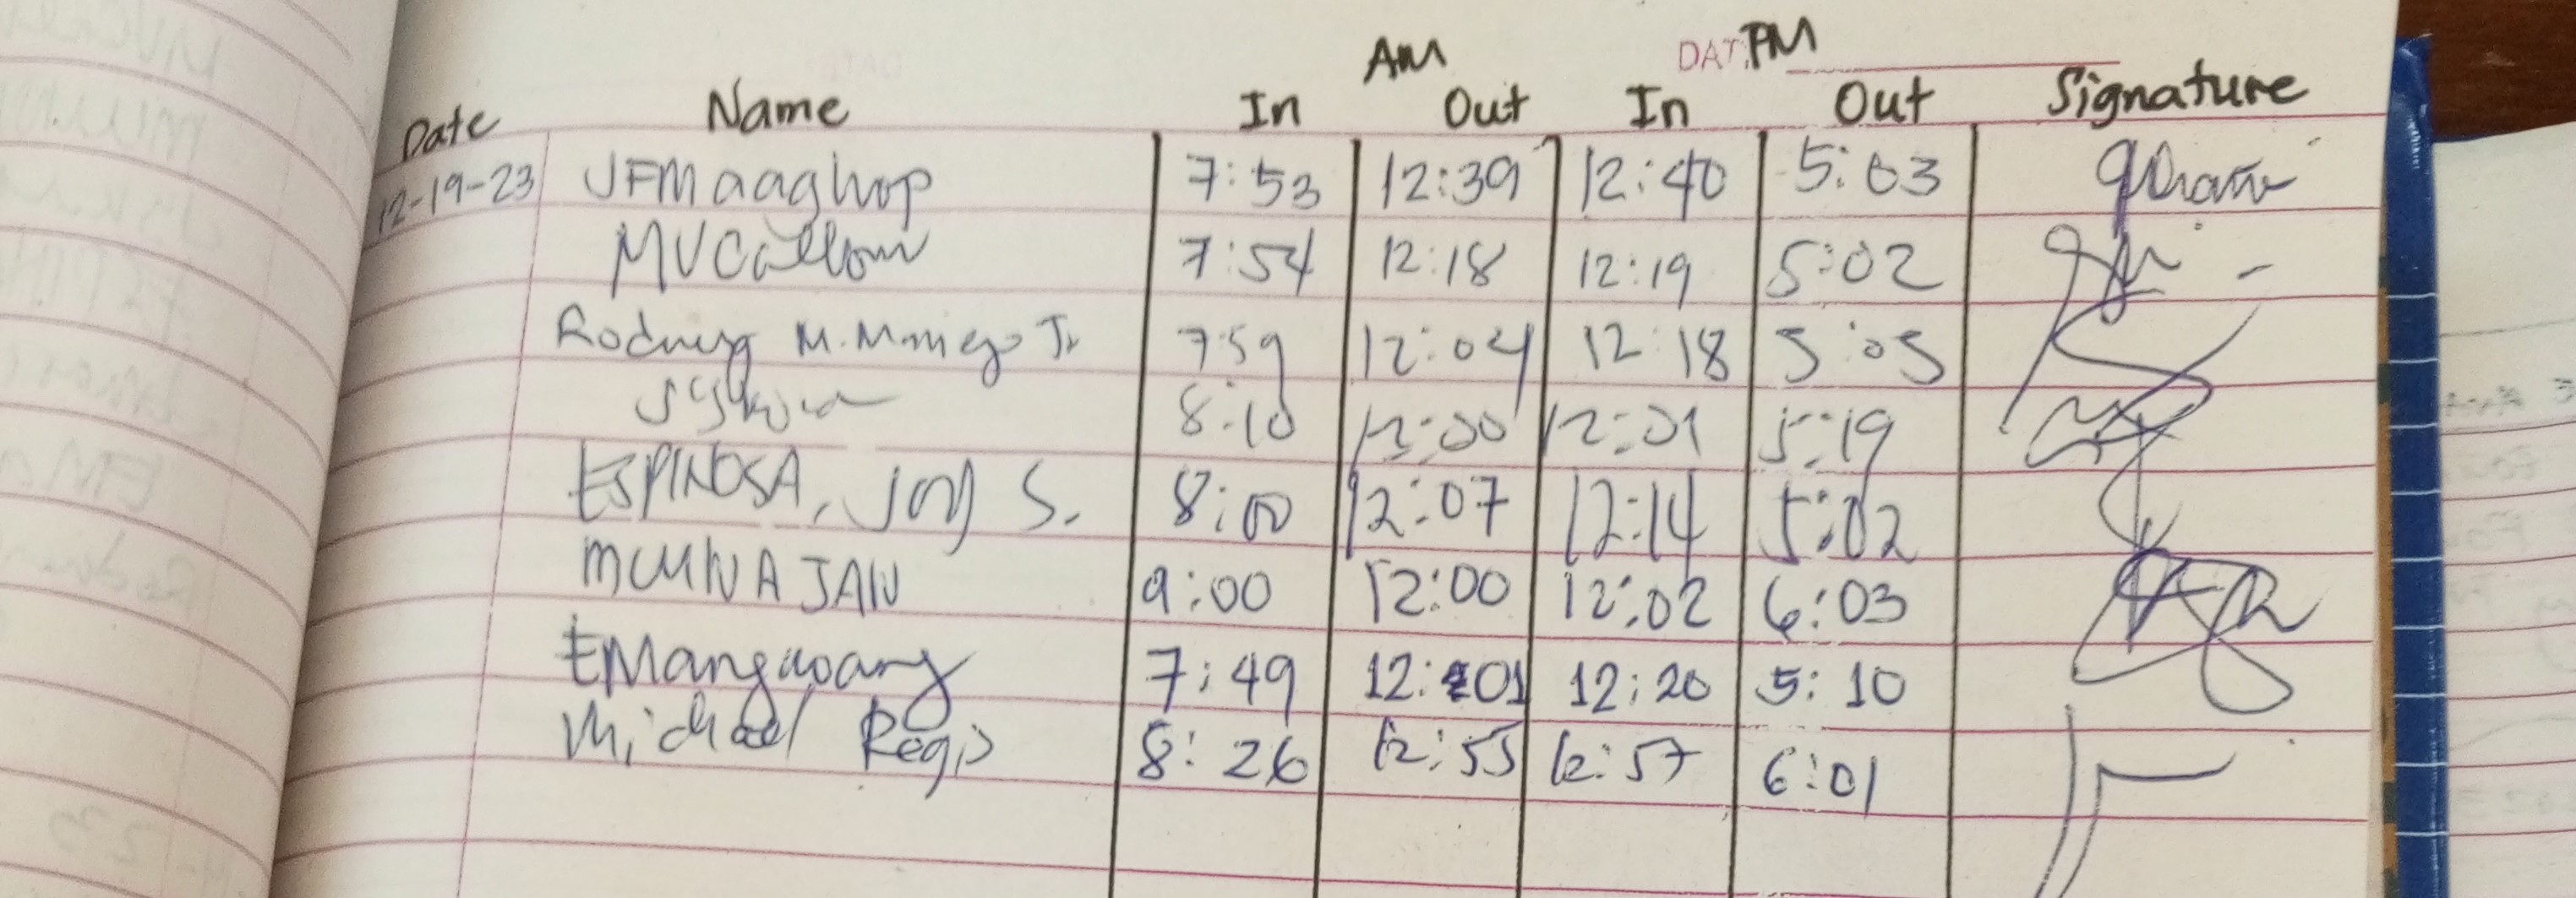 AM DATE PM
Date Name In Out In Out Signature
12-19-23 JFMaaghop 7:53 12:39 12:40 5:03
7:54 12:18 12:19 5:02
M. Jr. 7:59 12:04 12:18 5:05
8:10 12:00 12:01 5:19
ESPINOSA, Joy S. 8:00 12:07 12:14 5:02
9:00 12:00 12:02 6:03
EMangwang 7:49 12:01 12:20 5:10
Michael Regis 8:26 12:55 12:57 6:01